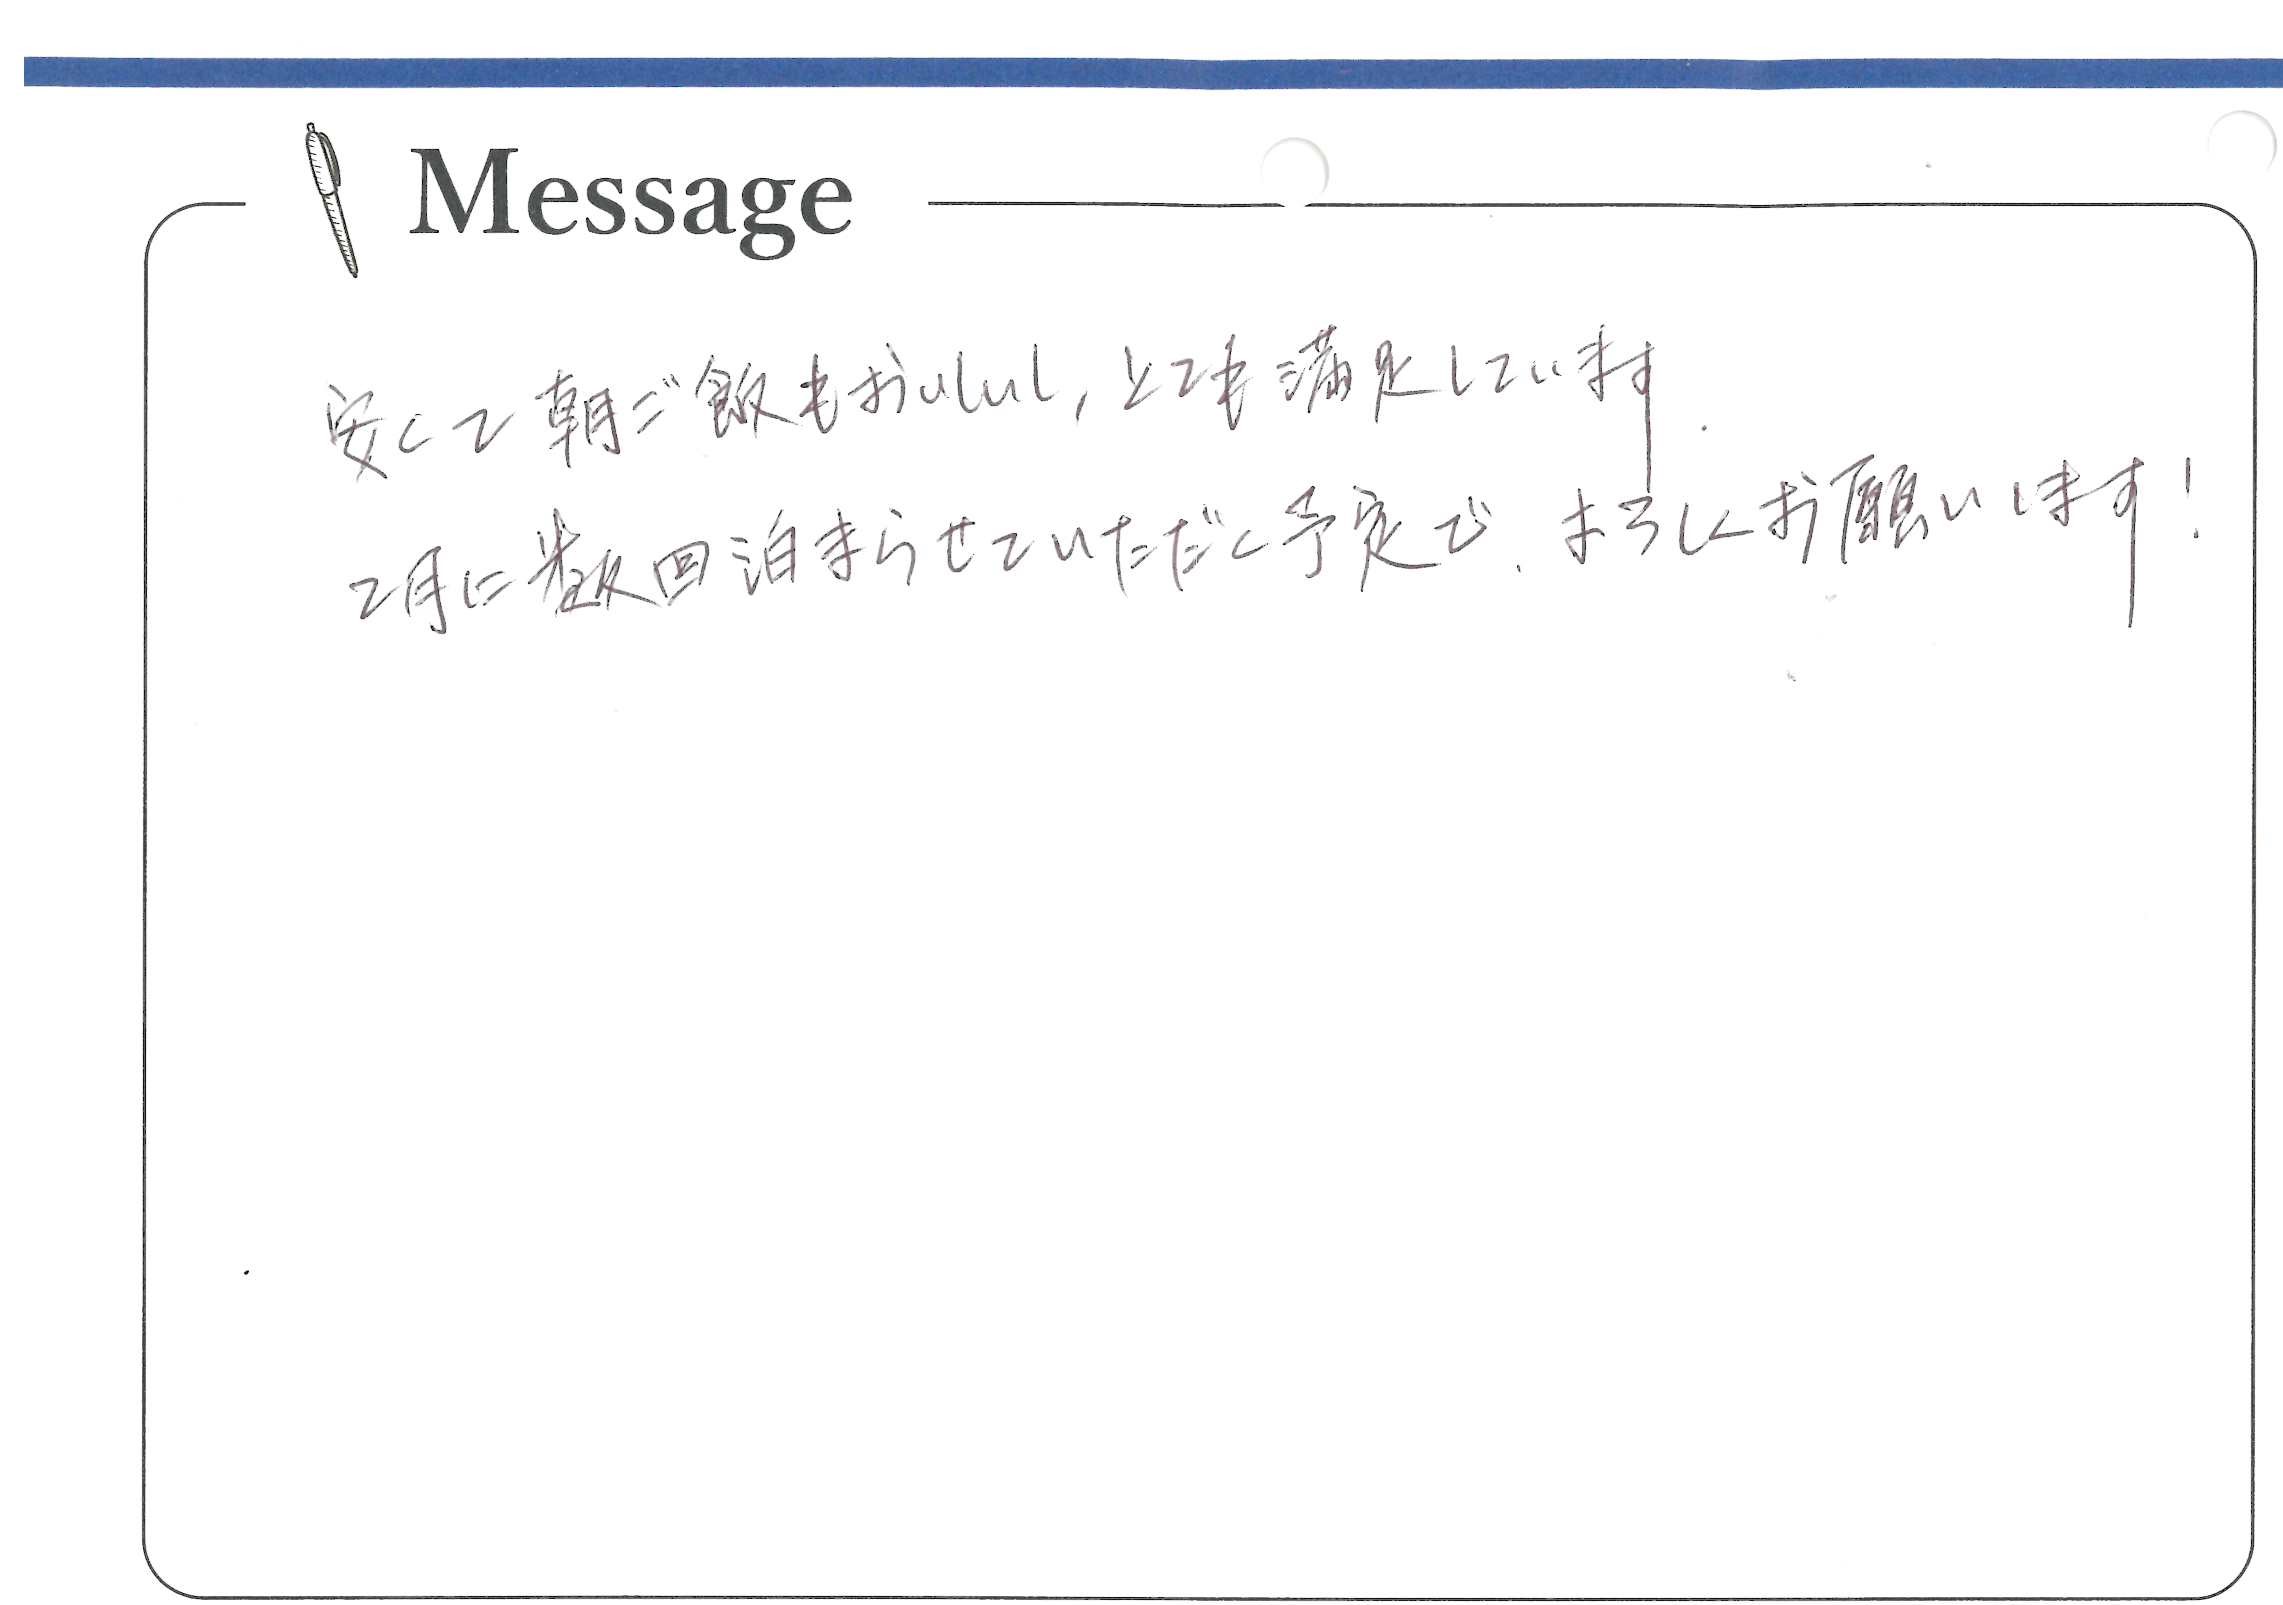 Message
安くて朝ご飯もおいしいし,とても満足しています.
2月に数回泊まらせていただく予定で、よろしくお願いします!